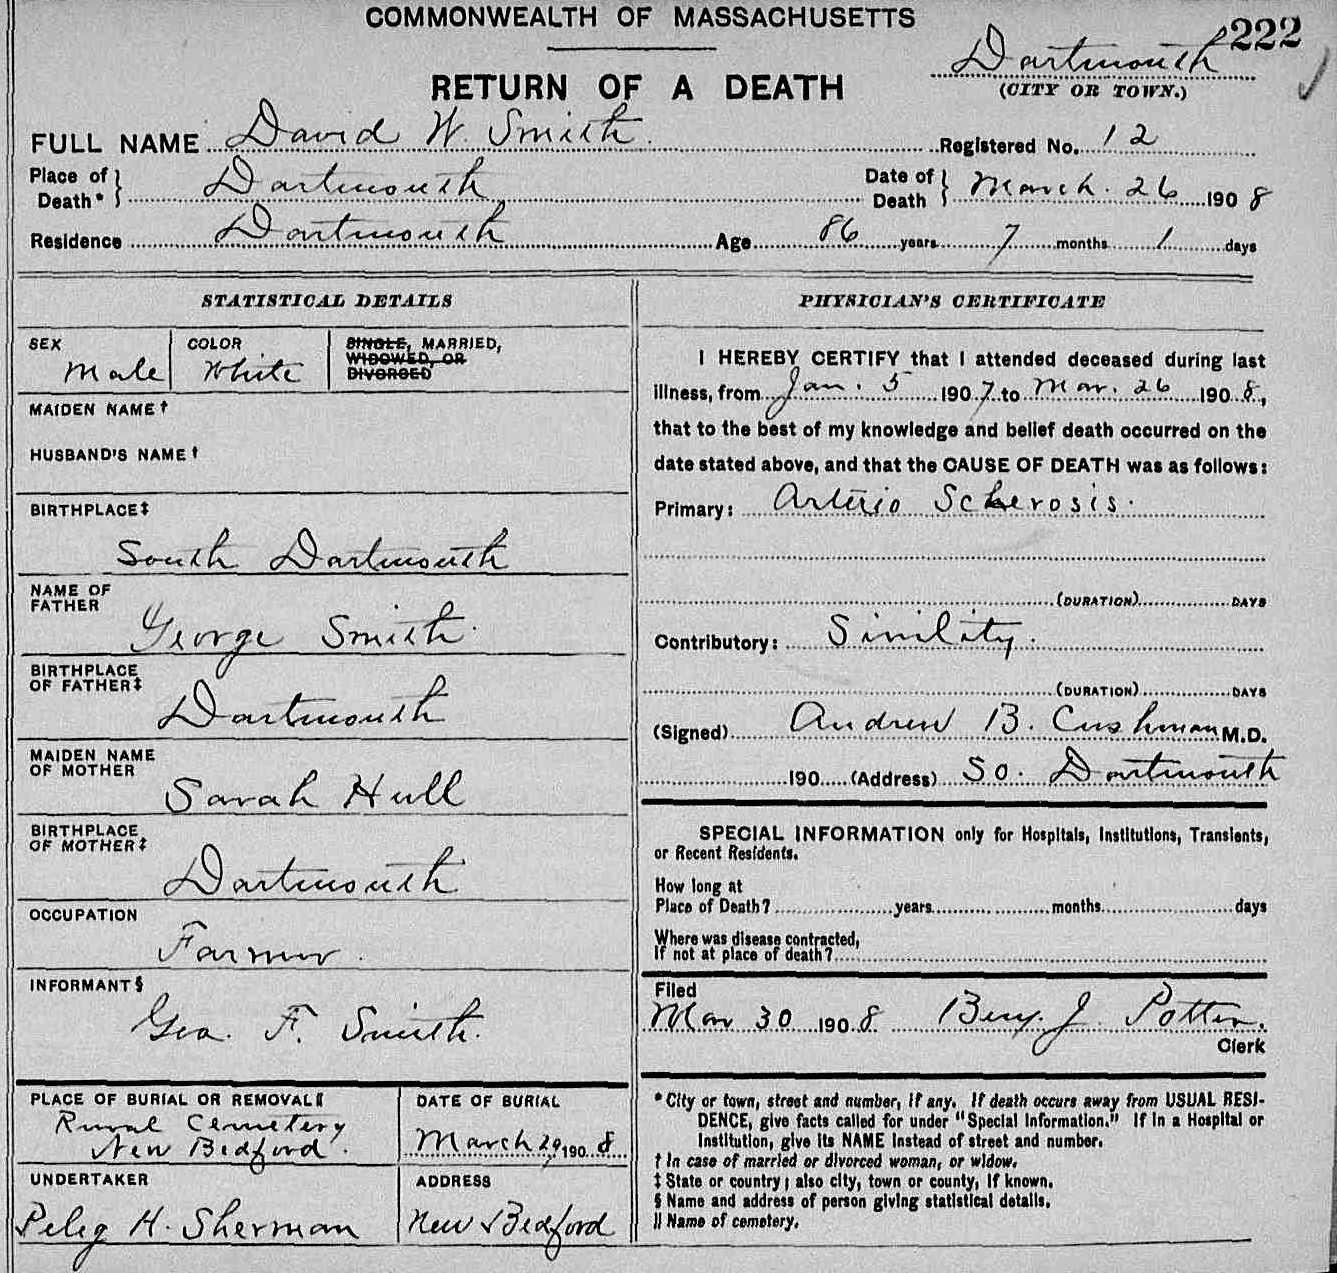 COMMONWEALTH OF MASSACHUSETTS
222
Dartmouth
(CITY OR TOWN.)
RETURN OF A DEATH
FULL NAME David W. Smith.
Registered No. 12
Place of Death* } Dartmouth
Date of Death } March. 26 1908
Residence Dartmouth
Age 86 years 7 months 1 days
STATISTICAL DETAILS
SEX
Male
COLOR
White
SINGLE, MARRIED,
WIDOWED, OR
DIVORCED
MAIDEN NAME †
HUSBAND'S NAME †
BIRTHPLACE ‡
South Dartmouth
NAME OF
FATHER
George Smith.
BIRTHPLACE
OF FATHER ‡
Dartmouth
MAIDEN NAME
OF MOTHER
Sarah Hull
BIRTHPLACE
OF MOTHER ‡
Dartmouth
OCCUPATION
Farmer.
INFORMANT §
Geo. F. Smith.
PLACE OF BURIAL OR REMOVAL ||
Rural Cemetery
New Bedford.
DATE OF BURIAL
March 29, 1908
UNDERTAKER
Peleg H. Sherman
ADDRESS
New Bedford
PHYSICIAN'S CERTIFICATE
I HEREBY CERTIFY that I attended deceased during last
illness, from Jan. 5 1907 to Mar. 26 1908,
that to the best of my knowledge and belief death occurred on the
date stated above, and that the CAUSE OF DEATH was as follows:
Primary: Arterio Sclerosis.
(DURATION) DAYS
Contributory: Sinility.
(DURATION) DAYS
(Signed) Andrew B. Cushman M.D.
190 (Address) So. Dartmouth
SPECIAL INFORMATION only for Hospitals, Institutions, Transients,
or Recent Residents.
How long at
Place of Death? years months days
Where was disease contracted,
If not at place of death?
Filed
Mar 30 1908 Benj. J. Potter.
Clerk
* City or town, street and number, if any. If death occurs away from USUAL RESI-
DENCE, give facts called for under "Special Information." If in a Hospital or
Institution, give its NAME instead of street and number.
† In case of married or divorced woman, or widow.
‡ State or country; also city, town or county, if known.
§ Name and address of person giving statistical details.
|| Name of cemetery.